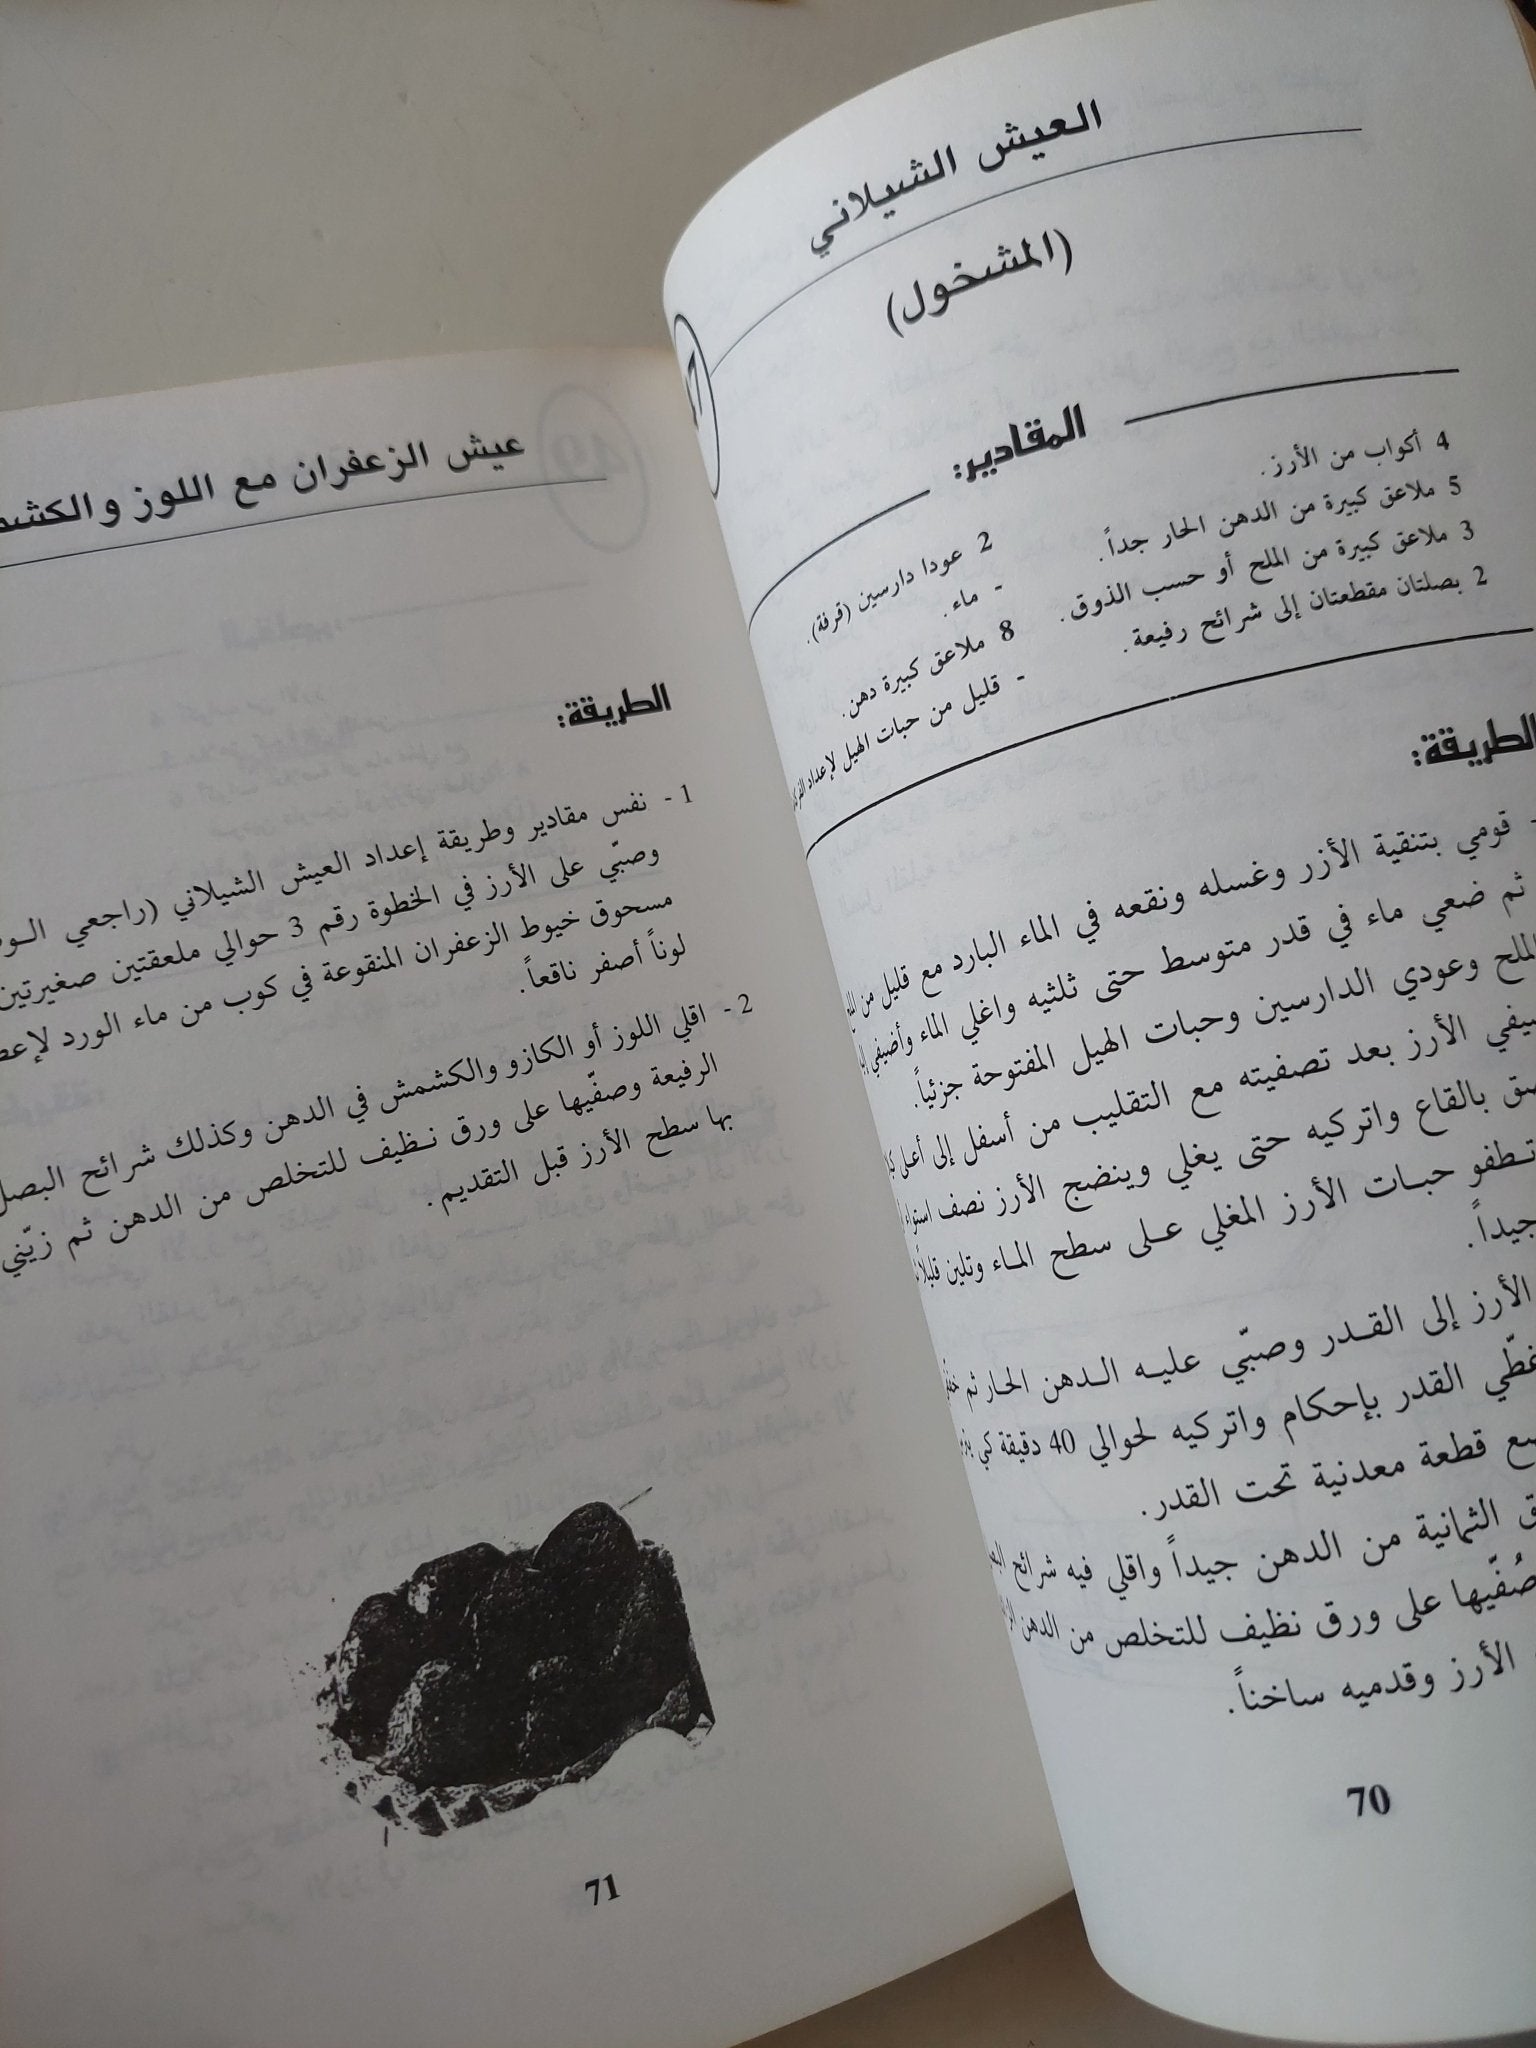 العيش الشيلاني
(المشخول)
المقادير:
4 أكواب من الأرز.
5 ملاعق كبيرة من الدهن الحار جداً.
3 ملاعق كبيرة من الملح أو حسب الذوق.
2 بصلتان مقطعتان إلى شرائح رفيعة.
2 عودا دارسين (قرفة).
- ماء.
8 ملاعق كبيرة دهن.
- قليل من حبات الهيل لإعداد
الطريقة:
- قومي بتنقية الأزر وغسله ونقعه في الماء البارد مع قليل من
ثم ضعي ماء في قدر متوسط حتى ثلثيه واغلي الماء وأضيفي
الملح وعودي الدارسين وحبات الهيل المفتوحة جزئياً.
الأرز بعد تصفيته مع التقليب من أسفل إلى أعلى
بالقاع واتركيه حتى يغلي وينضج الأرز نصف استواء
تطفو حبات الأرز المغلي على سطح الماء وتلين قليلاً
جيداً.
الأرز إلى القدر وصبّي عليه الدهن الحار ثم
القدر بإحكام واتركيه لحوالي 40 دقيقة كي
قطعة معدنية تحت القدر.
الثمانية من الدهن جيداً واقلي فيه شرائح
على ورق نظيف للتخلص من الدهن
الأرز وقدميه ساخناً.
70
49
عيش الزعفران مع اللوز
الطريقة:
1 - نفس مقادير وطريقة إعداد العيش الشيلاني (راجعي
وصبّي على الأرز في الخطوة رقم 3 حوالي ملعقتين صغيرتين
مسحوق خيوط الزعفران المنقوعة في كوب من ماء الورد
لوناً أصفر ناقعاً.
2 - اقلي اللوز أو الكازو والكشمش في الدهن وكذلك شرائح البصل
الرفيعة وصفّيها على ورق نظيف للتخلص من الدهن ثم زيّني
بها سطح الأرز قبل التقديم.
71